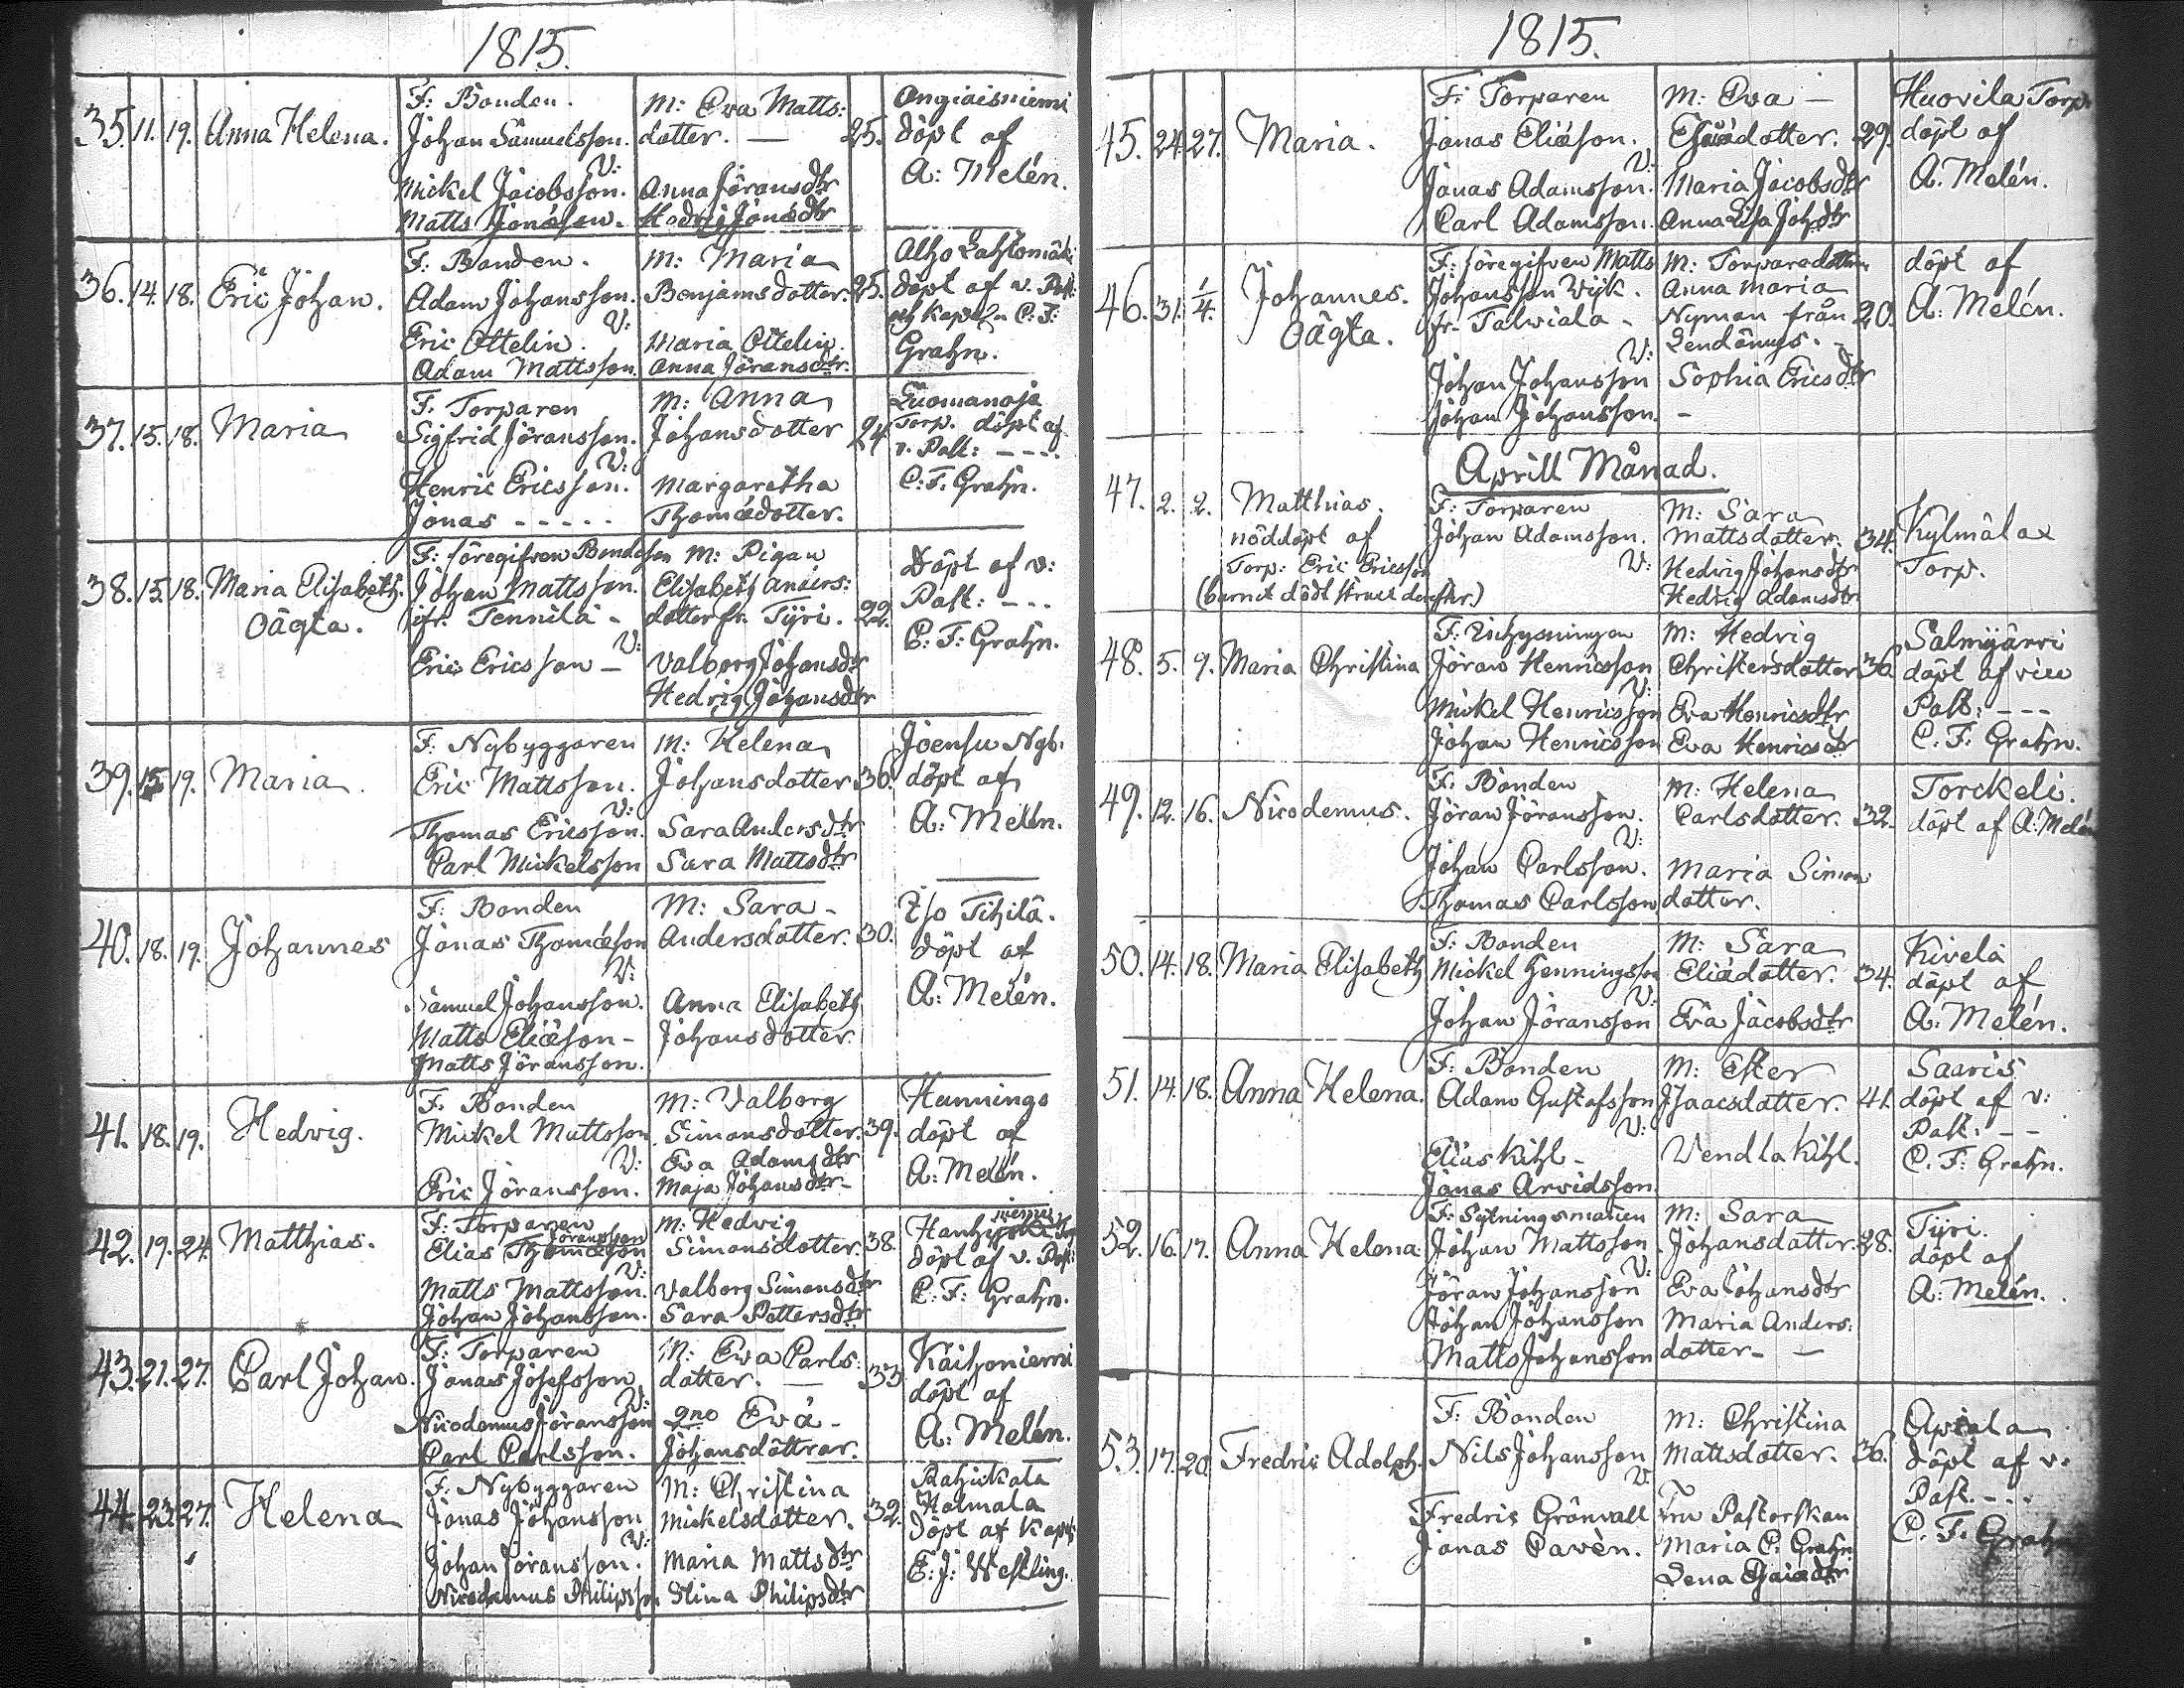 1815.
35. 11. 19. Anna Helena.
F: Bonden.
Johan Samuelsson.
V:
Mickel Jacobsson.
Matts Jonæson.
M: Eva Matts:
dotter. — 25.
Anna Jöransdtr
Hedvig Jonædtr
Ongiaisniemi
döpt af
A: Melén.
36. 14. 18. Eric Johan.
F: Bonden.
Adam Johansson.
V:
Eric Ottelin.
Adam Mattsson.
M: Maria
Benjamsdotter. 25.
Maria Ottelin.
Anna Jöransdtr.
Alho Lahtomäki
döpt af v. Past:
och kapel:n C: F:
Grahn.
37. 15. 18. Maria
F. Torparen
Sigfrid Jöransson.
V:
Henric Ericsson.
Jonas - - - - -
M: Anna
Johansdotter 24
Margaretha
Thomædotter.
Luomanoja
Torp. döpt af
v. Past: - - - -
C. F. Grahn.
38. 15. 18. Maria Elisabeth.
Oägta.
F: föregifven Bondeson
Johan Mattsson.
ifr. Tennilä -
V:
Eric Ericsson —
M: Pigan
Elisabeth Anders:
dotter fr. Tyri. 22.
Valborg Johansdtr
Hedvig Johansdtr
Döpt af v:
Past: - - -
C. F: Grahn.
39. 15. 19. Maria.
F: Nybyggaren
Eric Mattsson.
V:
Thomas Ericsson.
Carl Mickelsson
M: Helena
Johansdotter 36.
Sara Andersdtr
Sara Mattsdtr
Joensu Nyb.
döpt af
A: Melén.
40. 18. 19. Johannes
F. Bonden
Jonas Thomæson
V:
Samuel Johansson.
Matts Eliæson -
Matts Jöransson.
M: Sara -
Andersdotter. 30.
Anna Elisabeth
Johansdotter.
Iso Tihilä.
döpt af
A: Melén.
41. 18. 19. Hedvig.
F. Bonden
Mickel Mattsson
V:
Eric Jöransson.
M: Valborg
Simonsdotter. 39.
Eva Adamsdtr
Maja Johansdtr-
Hannings
döpt af
A: Melén.
42. 19. 24. Matthias.
F: Torparen
Jöransson
Elias Thomæson
V:
Matts Mattsson.
Johan Johansson.
M: Hedvig
Simonsdotter. 38.
Valborg Simonsdtr
Sara Pettersdtr
niemi
döpt af v. Past:
C: F: Grahn.
43. 21. 27. Carl Johan.
F: Torparen
Jonas Josefsson
V:
Nicodemus Jöransson
Carl Carlsson.
M: Eva Carls:
dotter. — 33
2:no Eva -
Johansdöttrar.
Kaihoniemi
döpt af
A: Melén.
44. 23. 27. Helena
F: Nybyggaren
Jonas Johansson
V:
Johan Jöransson.
Nicodemus Philipsson
M: Christina
Mickelsdotter. 32.
Maria Mattsdtr
Stina Philipsdtr
Halmala
döpt af Kapl:
E: J: Westling.
1815.
45. 24. 27. Maria.
F: Torparen
Jonas Eliæson.
V:
Jonas Adamsson.
Carl Adamsson.
M: Eva —
Esaiædotter. 29.
Maria Jacobsdtr
Anna Lisa Johdtr
Huovila Torp.
döpt af
A. Melén.
46. 31. 1/4. Johannes.
Oägta.
F: föregifven Matts
Johansson Wijk.
fr. Talwiala -
V:
Johan Johansson
Johan Johansson.
M: Torparedottern
Anna Maria
Nyman från 20.
Lendänmys. -
Sophia Ericsdtr
-
döpt af
A: Melén.
Aprill Månad.
47. 2. 2. Matthias.
nöddöpt af
Torp: Eric Ericsson
(barnet dödt straxt derefter.)
F: Torparen
Johan Adamsson.
V:
M: Sara
Mattsdotter. 34.
Hedvig Johansdtr
Hedvig Adamsdtr
Kylmälax
Torp.
48. 5. 9. Maria Christina
F: Inhysningen
Jöran Henricsson
V:
Mickel Henricsson
Johan Henricsson
M: Hedvig
Christersdotter 36.
Eva Henricsdtr
Eva Henricsdtr
Salmijärvi
döpt af vice
Past: - - -
C. F: Grahn.
49. 12. 16. Nicodemus.
F: Bonden
Jöran Jöransson.
V:
Johan Carlsson.
Thomas Carlsson
M: Helena
Carlsdotter. 32.
Maria Simon
dotter.
Torckeli.
döpt af A: Melén
50. 14. 18. Maria Elisabeth
F: Bonden
Mickel Henningsson
V:
Johan Jöransson
M: Sara
Eliædotter. 34.
Eva Jacobsdtr
Kivelä
döpt af
A: Melén.
51. 14. 18. Anna Helena.
F: Bonden
Adam Gustafsson
V:
Elias Kihl -
Jonas Arvidsson
M: Ester
Isaacsdotter. 41.
Vendla Kihl.
Saaris
döpt af v:
Past: - -
C. F: Grahn.
52. 16. 17. Anna Helena
F: Sytningsmannen
Johan Mattsson
V:
Jöran Johansson
Johan Johansson
Matts Johansson
M: Sara
Johansdotter. 28.
Eva Johansdtr
Maria Anders:
dotter- —
Tyri.
döpt af
A: Melén.
53. 17. 20. Fredric Adolph.
F: Bonden
Nils Johansson
V.
Fredric Grönvall
Jonas Cavèn.
M: Christina
Mattsdotter. 36.
Fru Pastorskan
Maria C: Grahn
Lena Esaiædtr
Apiala
döpt af v.
Past. - - -
C. F. Grahn